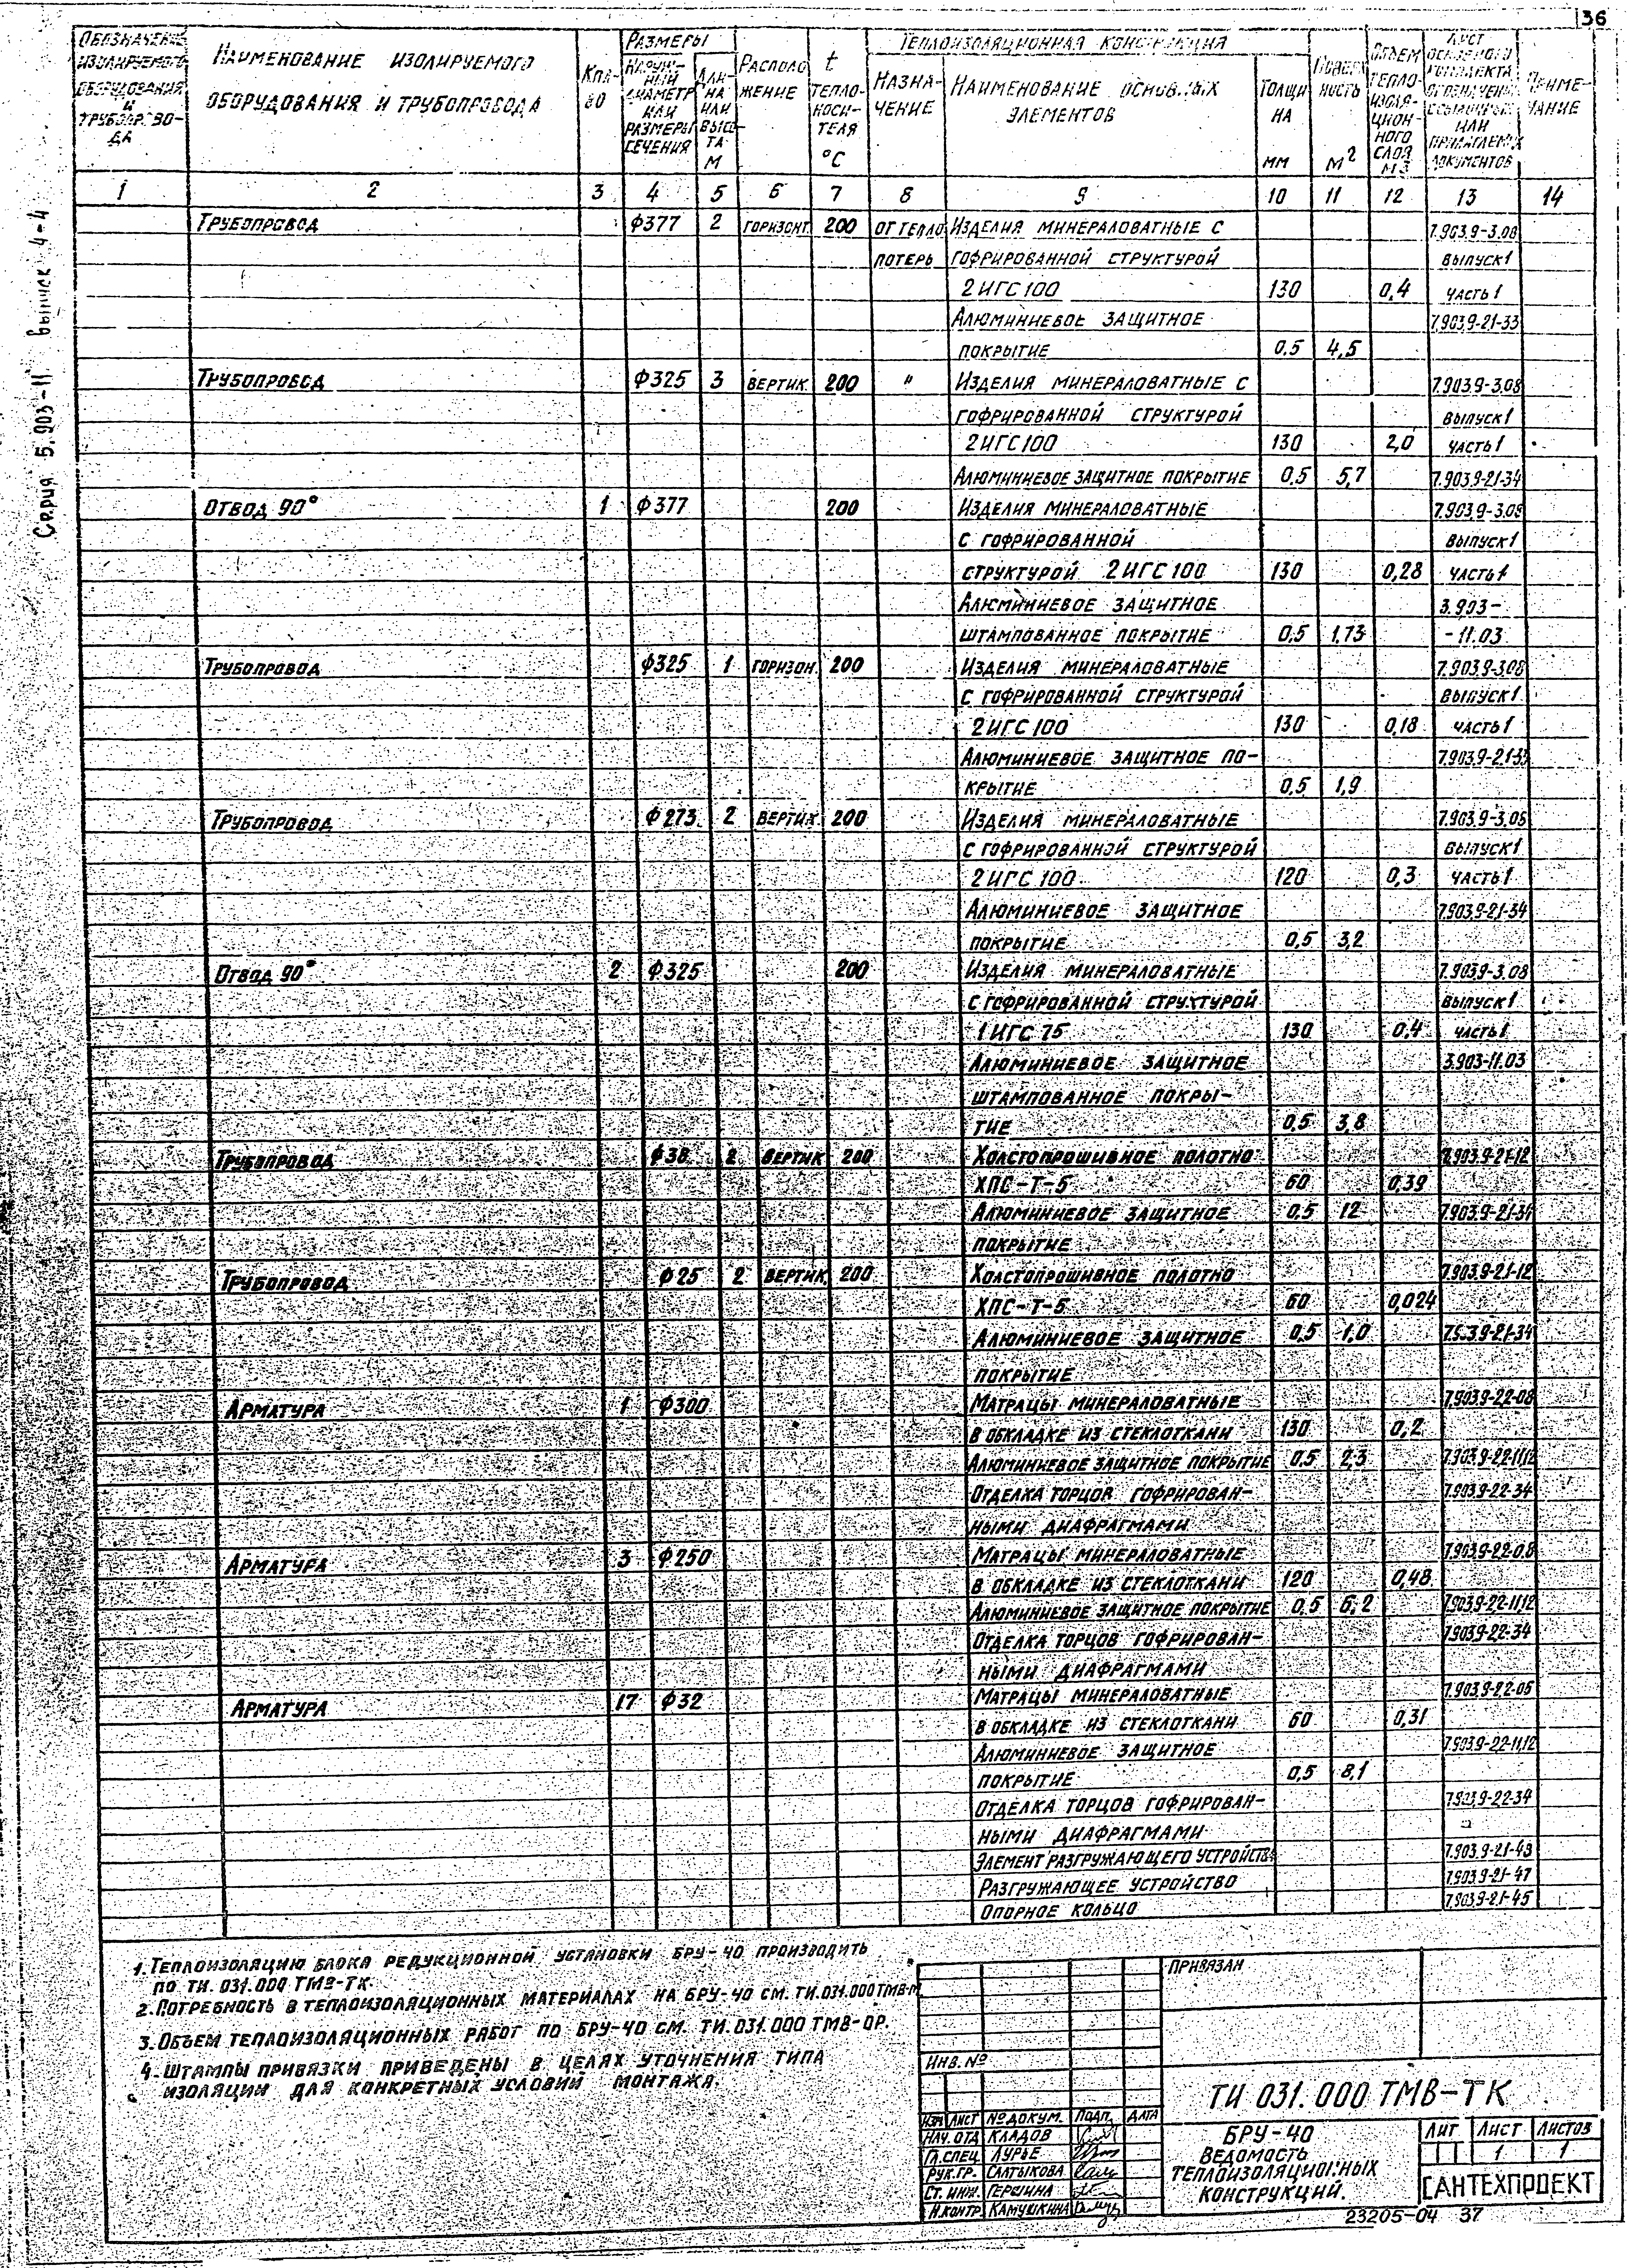 36
Серия 5.903-11 выпуск 4-4
Обозначение изолируемого оборудования и трубопровода
Наименование изолируемого оборудования и трубопровода
Кол-во
Размеры
Наружный диаметр или размеры сечения
Длина или высота м
Расположение
t теплоносителя °С
Теплоизоляционная конструкция
Назначение
Наименование основных элементов
Толщина мм
Поверхность м2
Объем теплоизоляционного слоя м3
Лист основного комплекта обозначение ссылочных или прилагаемых документов
Примечание
1 2 3 4 5 6 7 8 9 10 11 12 13 14
Трубопровод ф377 2 горизонт. 200 от тепло Изделия минераловатные с 7.903.9-3.08
потерь гофрированной структурой выпуск 1
2ИГС100 130 0,4 часть 1
Алюминиевое защитное 7.903.9-21-33
покрытие 0.5 4,5
Трубопровод ф325 3 вертик. 200 " Изделия минераловатные с 7.903.9-3.08
гофрированной структурой выпуск 1
2ИГС100 130 2,0 часть 1
Алюминиевое защитное покрытие 0,5 5,7 7.903.9-21-34
Отвод 90° 1 ф377 200 Изделия минераловатные 7.903.9-3.08
с гофрированной выпуск 1
структурой 2ИГС100 130 0,28 часть 1
Алюминиевое защитное 3.903-
штампованное покрытие 0,5 1,73 -11.03
Трубопровод ф325 1 горизон. 200 Изделия минераловатные 7.903.9-3.08
с гофрированной структурой выпуск 1
2ИГС100 130 0,18 часть 1
Алюминиевое защитное по- 7.903.9-21-33
крытие 0,5 1,9
Трубопровод ф273 2 вертик. 200 Изделия минераловатные 7.903.9-3.08
с гофрированной структурой выпуск 1
2ИГС100 120 0,3 часть 1
Алюминиевое защитное 7.903.9-21-34
покрытие 0,5 3,2
Отвод 90° 2 ф325 200 Изделия минераловатные 7.903.9-3.08
с гофрированной структурой выпуск 1
1ИГС 75 130 0,4 часть 1
Алюминиевое защитное 3.903-11.03
штампованное покры-
тие 0,5 3,8
Трубопровод ф38 2 вертик 200 Холстопрошивное полотно 7.903.9-21-12
ХПС-Т-5 60 0,39
Алюминиевое защитное 0,5 12 7.903.9-21-34
покрытие
Трубопровод ф25 2 вертик. 200 Холстопрошивное полотно 7.903.9-21-12
ХПС-Т-5 60 0,024
Алюминиевое защитное 0,5 1,0 7.903.9-21-34
покрытие
Арматура 1 ф300 Матрацы минераловатные 7.903.9-22-08
в обкладке из стеклоткани 130 0,2
Алюминиевое защитное покрытие 0,5 2,3 7.903.9-22-11,12
Отделка торцов гофрирован- 7.903.9-22-34
ными диафрагмами
Арматура 3 ф250 Матрацы минераловатные 7.903.9-22-08
в обкладке из стеклоткани 120 0,48
Алюминиевое защитное покрытие 0,5 6,2 7.903.9-22-11,12
Отделка торцов гофрирован- 7.903.9-22-34
ными диафрагмами
Арматура 17 ф32 Матрацы минераловатные
в обкладке из стеклоткани 60 0,31
Алюминиевое защитное 7.903.9-22-11,12
покрытие 0,5 8,1
Отделка торцов гофрирован- 7.903.9-22-34
ными диафрагмами
Элемент разгружающего устройства 7.903.9-21-43
Разгружающее устройство 7.903.9-21-47
Опорное кольцо 7.903.9-21-45
1. Теплоизоляцию блока редукционной установки БРУ-40 производить
по ТИ. 031.000 ТМВ-ТК.
2. Потребность в теплоизоляционных материалах на БРУ-40 см. ТИ.031.000ТМВ-М
3. Объем теплоизоляционных работ по БРУ-40 см. ТИ.031.000 ТМВ-ОР.
4. Штампы привязки приведены в целях уточнения типа
изоляции для конкретных условий монтажа.
Привязан
Инв. №
ТИ 031.000 ТМВ-ТК
Изм Лист № докум. Подп. Дата
Нач. отд Кладов
Гл. спец Лурье
Рук. гр. Салтыкова
Ст. инж. Гершина
Н. контр Камушкина
БРУ-40
Ведомость
теплоизоляционных
конструкций.
Лит Лист Листов
1 1
САНТЕХПРОЕКТ
23205-04 37